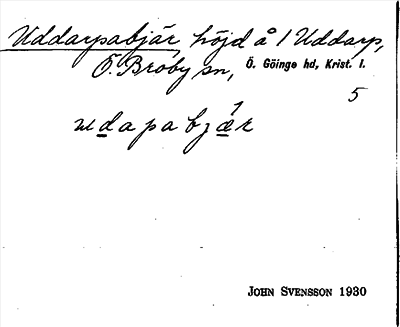 Uddarpsabjär höjd å 1 Uddarp,
Ö. Broby sn, Ö. Göinge hd, Krist. l.
5
JOHN SVENSSON 1930